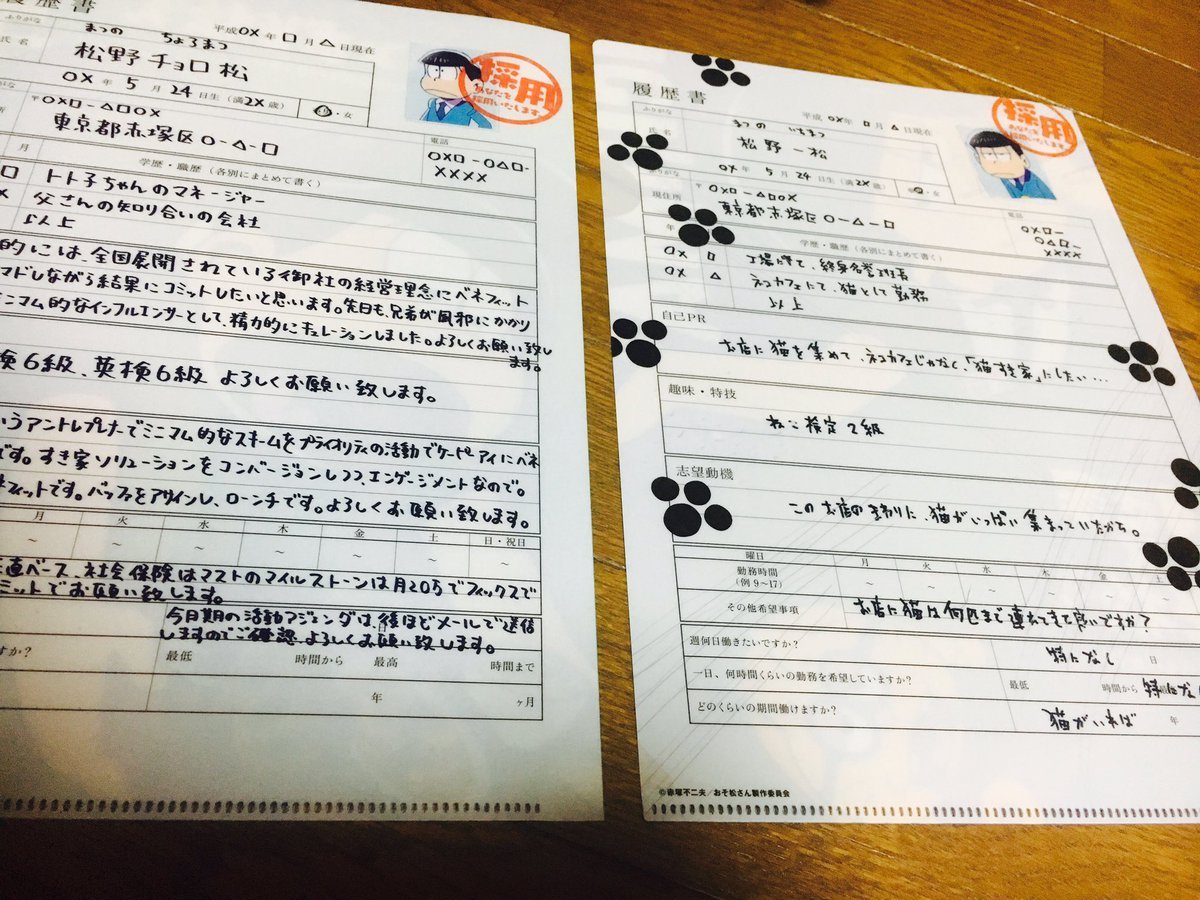 履歴書
ふりがな
まつの ちょろまつ
平成OX年□月△日現在
氏名
松野チョロ松
OX年5月24日生(満2X歳)
男・女
採用
あなたを
採用いたします
〒OX□-△□OX
東京都赤塚区O-△-□
電話
OX□-O△□-
XXXX
月
学歴・職歴(各別にまとめて書く)
トト子ちゃんのマネージャー
父さんの知り合いの会社
以上
的には、全国展開されている御社の経営理念にベネフィット
マドしながら結果にコミットしたいと思います。先日も、兄弟が風邪にかかり
ミニマム的なインフルエンサーとして、精力的にキュレーションしました。よろしくお願い致し
ます。
検6級、英検6級 よろしくお願い致します。
いうアントレプレナーでミニマム的なスキームをプライオリティの活動でケーピーアイにベネ
です。すき家ソリューションをコンバージョンしつつ、エンゲージメントなので。
フィットです。バッファをアサインし、ローンチです。よろしくお願い致します。
月 火 水 木 金 土 日・祝日
~ ~ ~ ~ ~ ~ ~
ベース、社会保険はマストのマイルストーンは月205でフィックスで
ミットでお願い致します。
今日期の活動アジェンダは、後ほどメールで送信
しますのでご確認よろしくお願い致します。
すか?
最低 時間から 最高 時間まで
年 ヶ月
履歴書
ふりがな
まつの いちまつ
平成OX年□月△日現在
氏名
松野 一松
OX年5月24日生(満2X歳)
男・女
採用
あなたを
採用いたします
ふりがな
現住所
〒OX□-△□OX
東京都赤塚区O-△-□
電話
OX□-
O△□-
XXXX
年
学歴・職歴(各別にまとめて書く)
OX □ 工場にて、終身名誉班長
OX △ ネコカフェにて、猫として勤務
以上
自己PR
お店に猫を集めて、ネコカフェじゃなく、「猫すき家」にしたい…
趣味・特技
ねこ検定2級
志望動機
このお店のまわりに、猫がいっぱい集まっていたから。
曜日 月 火 水 木 金 土
勤務時間
(例 9~17)
~ ~ ~ ~ ~ ~
その他希望事項
お店に猫は何匹まで連れてきて良いですか?
週何日働きたいですか?
特になし 日
一日、何時間くらいの勤務を希望していますか?
最低 時間から 特になし
どのくらいの期間働けますか?
猫がいれば 年
©赤塚不二夫/おそ松さん製作委員会